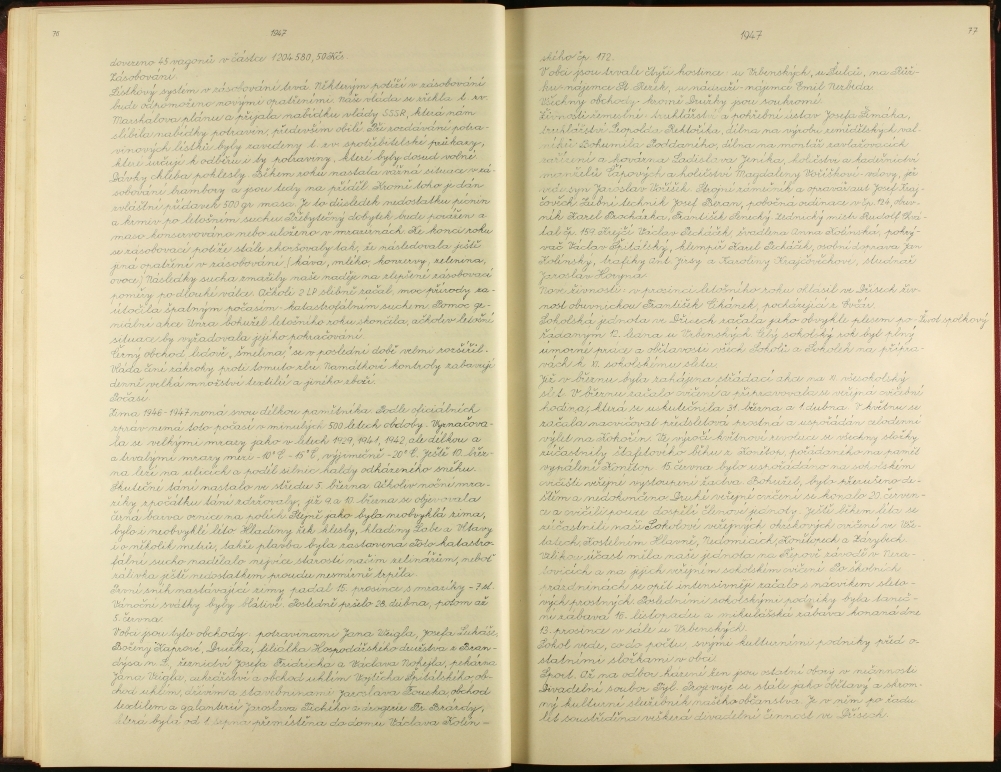 76
1947
dovezeno 45 vagonů v částce 1204.580,50 Kčs
Zásobování.
Lístkový systém v zásobování trvá. Některým potíží v zásobování
bude odpomoženo novými opatřeními. Naše vláda se zřekla t. zv.
Marshalova plánu a přijala nabídku vlády SSSR, která nám
slíbila nabídky potravin, především obilí. Při rozdávání potra-
vinových lístků byly zavedeny t. zv. spotřebitelské průkazy,
které určují k odběru i ty potraviny, které byly dosud volné.
Dávky chleba poklesly. Během roku nastala vážná situace v zá-
sobování brambory a jsou tedy na příděl. Kromě toho je dán
zvláštní přídavek 500 gr masa. Je to důsledek nedostatku pícnin
a krmiv po letošním suchu. Přebytečný dobytek bude poražen a
maso konservováno nebo uloženo v mrazírnách. Ke konci roku
se zásobovací potíže stále zhoršovaly tak, že následovala ještě
jiná opatření v zásobování (káva, mléko, konzervy, zelenina,
ovoce). Následky sucha zmařily naše naděje na zlepšení zásobovací
poměry po dlouhé válce. Ačkoli 2 LP slibně začal, moc přírody za-
útočila špatným počasím - katastrofálním suchem. Pomoc ge-
nuální akce Unra bohužel letošního roku skončila, ačkoliv letošní
situace by vyžadovala jejího pokračování.
Černý obchod lidově „šmelina" se v poslední době velmi rozšířil.
Vláda činí zákroky proti tomuto zlu. Namátkové kontroly zabavují
denně velká množství textilií a jiného zboží.
Počasí.
Zima 1946-1947 nemá svou délkou pamětníka. Podle oficiálních
zpráv nemá toto počasí v minulých 500 letech obdoby. Vyznačova-
la se velkými mrazy jako v letech 1929, 1941, 1942 ale délkou a
a trvalými mrazy mezi -10°C - 15°C, výjimečně -20°C. Ještě 10. břez-
na leží na ulicích a podél silnic haldy odházeného sněhu.
Skutečné tání nastalo ve středu 5. března. Ačkoliv noční mra-
zíky zpočátku tání zdržovaly, již 9. a 10. března se objevovala
černá barva ornice na polích. Stejně jako byla neobvyklá zima,
bylo i neobvyklé léto. Hladiny řek klesly, hladiny Labe a Vltavy
i o několik metrů, takže plavba byla zastavena. Toto katastro-
fální sucho nadělalo nejvíce starosti našim zelinářům, neboť
zálivka ještě nedostatkem proudu nesmírně trpěla.
První sníh nastávající zimy padal 15. prosince s mrazíky - 7 st.
Vánoční svátky byly blátivé. Posledně pršelo 28. dubna, potom až
5. června.
V obci jsou tyto obchody: potravinami Jana Veigla, Josefa Lukáše,
Boženy Kaprové, Družka, filiálka Hospodářského družstva z Bran-
dýsa n. L., řeznictví Josefa Fridricha a Václava Nohejla, pekárna
Jana Veigla, cukrářství a obchod uhlím Vojtěcha Špitálského, ob-
chod uhlím, dřívím a stavbninami Jaroslava Kouska, obchod
textilem a galanterií Jaroslava Tichého a drogerie Fr. Brázdy,
která byla od 1. srpna přemístěna do domu Václava Kolín-
77
1947
ského čp. 172.
V obci jsou trvale čtyři hostince: u Vrbenských, u Šulců, na Růž-
ku nájemce St. Peřek, u nádraží nájemce Emil Nerbeda.
Všechny obchody kromě Družky jsou soukromé.
Živnosti řemeslné: truhlářství a pohřební ústav Josefa Šimáka,
truhlářství Leopolda Rektoříka, dílna na výrobu zemědělských val-
níků Bohumila Poddaného, dílna na montáž zavlažovacích
zařízení a kovárna Ladislava Jeníka, holičství a kadeřnictví
manželů Čápových a holičství Magdaleny Voříškové - vdovy, již
vede syn Jaroslav Voříšek. Strojní zámečník a opravář aut Josef Kraj-
čovič. Zubní technik Josef Beran, pobočná ordinace v čp. 124, obuv-
ník Karel Procházka, František Senecký, zednický mistr Rudolf Chá-
tal čp. 157. Krejčí Václav Pecháček, švadlena Anna Kolínská, pokrý-
vač Václav Špitálský, klempíř Karel Pecháček, osobní doprava Jan
Kolínský, trafiky Ant. Jirsy a Karolíny Krajčovičové, studnař
Jaroslav Horyna.
Nové živnosti: v prosinci letošního roku ohlásil ve Dřísech živ-
nost obuvnickou František Cihánek, pocházející z Ovčár.
Sokolská jednota ve Dřísech začala jako obvykle plesem po-
řádaným 12. ledna u Vrbenských. Celý sokolský rok byl plný
úmorné práce a obětavosti všech Sokolů a Sokolek na přípra-
vách k XI. sokolskému sletu.
Život spolkový
Již v březnu byla zahájena střádací akce na XI. všesokolský
slet. V březnu začalo cvičení a připravovala se veřejná cvičební
hodina, která se uskutečnila 31. března a 1. dubna. V květnu se
začala nacvičovat předsletová prostná a uspořádán celodenní
výlet na Kokořín. Ve výročí květnové revoluce se všechny složky
zúčastnily štafetového běhu z Konětop, pořádaného na paměť
vypálení Konětop. 15. června bylo uspořádáno na sokolském
cvičišti veřejné vystoupení žactva. Bohužel, bylo přerušeno de-
štěm a nedokončeno. Druhé veřejné cvičení se konalo 20. červen-
ce a cvičili pouze dospělí členové jednoty. Ještě během léta se
zúčastnili naši Sokolové veřejných okrskových cvičení ve Vše-
tatech, Kostelním Hlavně, Nedomicích, Konětopech a Zárybech.
Velkou účast měla naše jednota na Řípově závodě v Nera-
tovicích a na jejich veřejném sokolském cvičení. Po školních
prázdninách se opět intensivněji začalo s nácvikem sleto-
vých prostných. Posledními sokolskými podniky byla taneč-
ní zábava 16. listopadu a mikulášská zábava konaná dne
13. prosince v sále u Vrbenských.
Sokol vede, co do počtu, svými kulturními podniky před o-
statními složkami v obci.
Sport. Až na odbor házení žen jsou ostatní obory v nečinnosti.
Divadelní soubor Tyl. Projevuje se stále jako obětavý a skrom-
ný kulturní služebník našeho občanstva. Je v něm po řadu
let soustředěna veškerá divadelní činnost ve Dřísech.